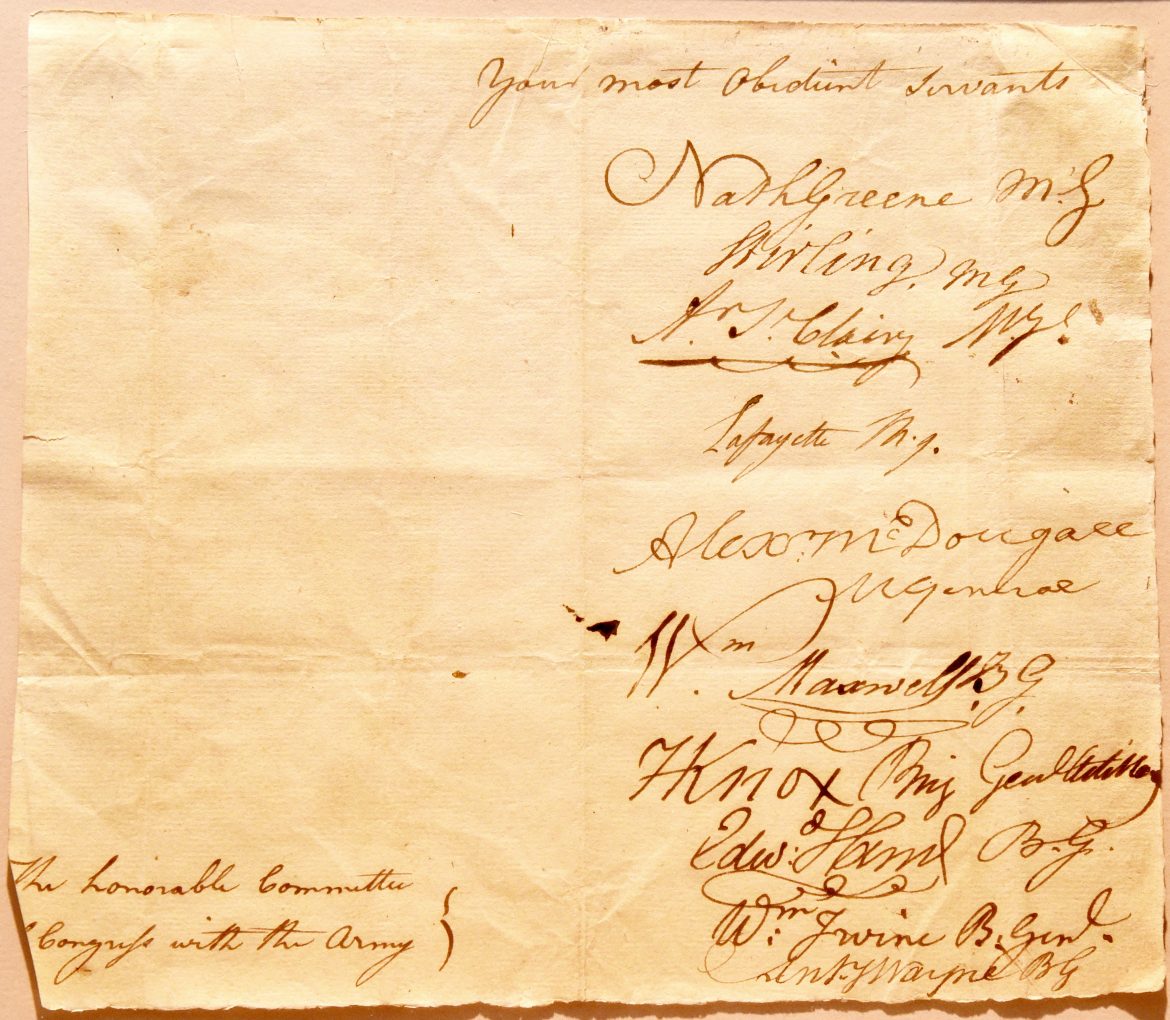 Your most Obedient Servants
Nath Greene M.G
Stirling, MG
Ar. St. Clair, M.Gl
Lafayette M.g.
Alexr. McDougall
MGeneral
Wm. Maxwell B.G.
HKnox Brig Genl Artillery
Edwd. Hand B.G.
Wm. Irvine B. Genl.
Anty Wayne BG
The honorable Committee
Congress with the Army }